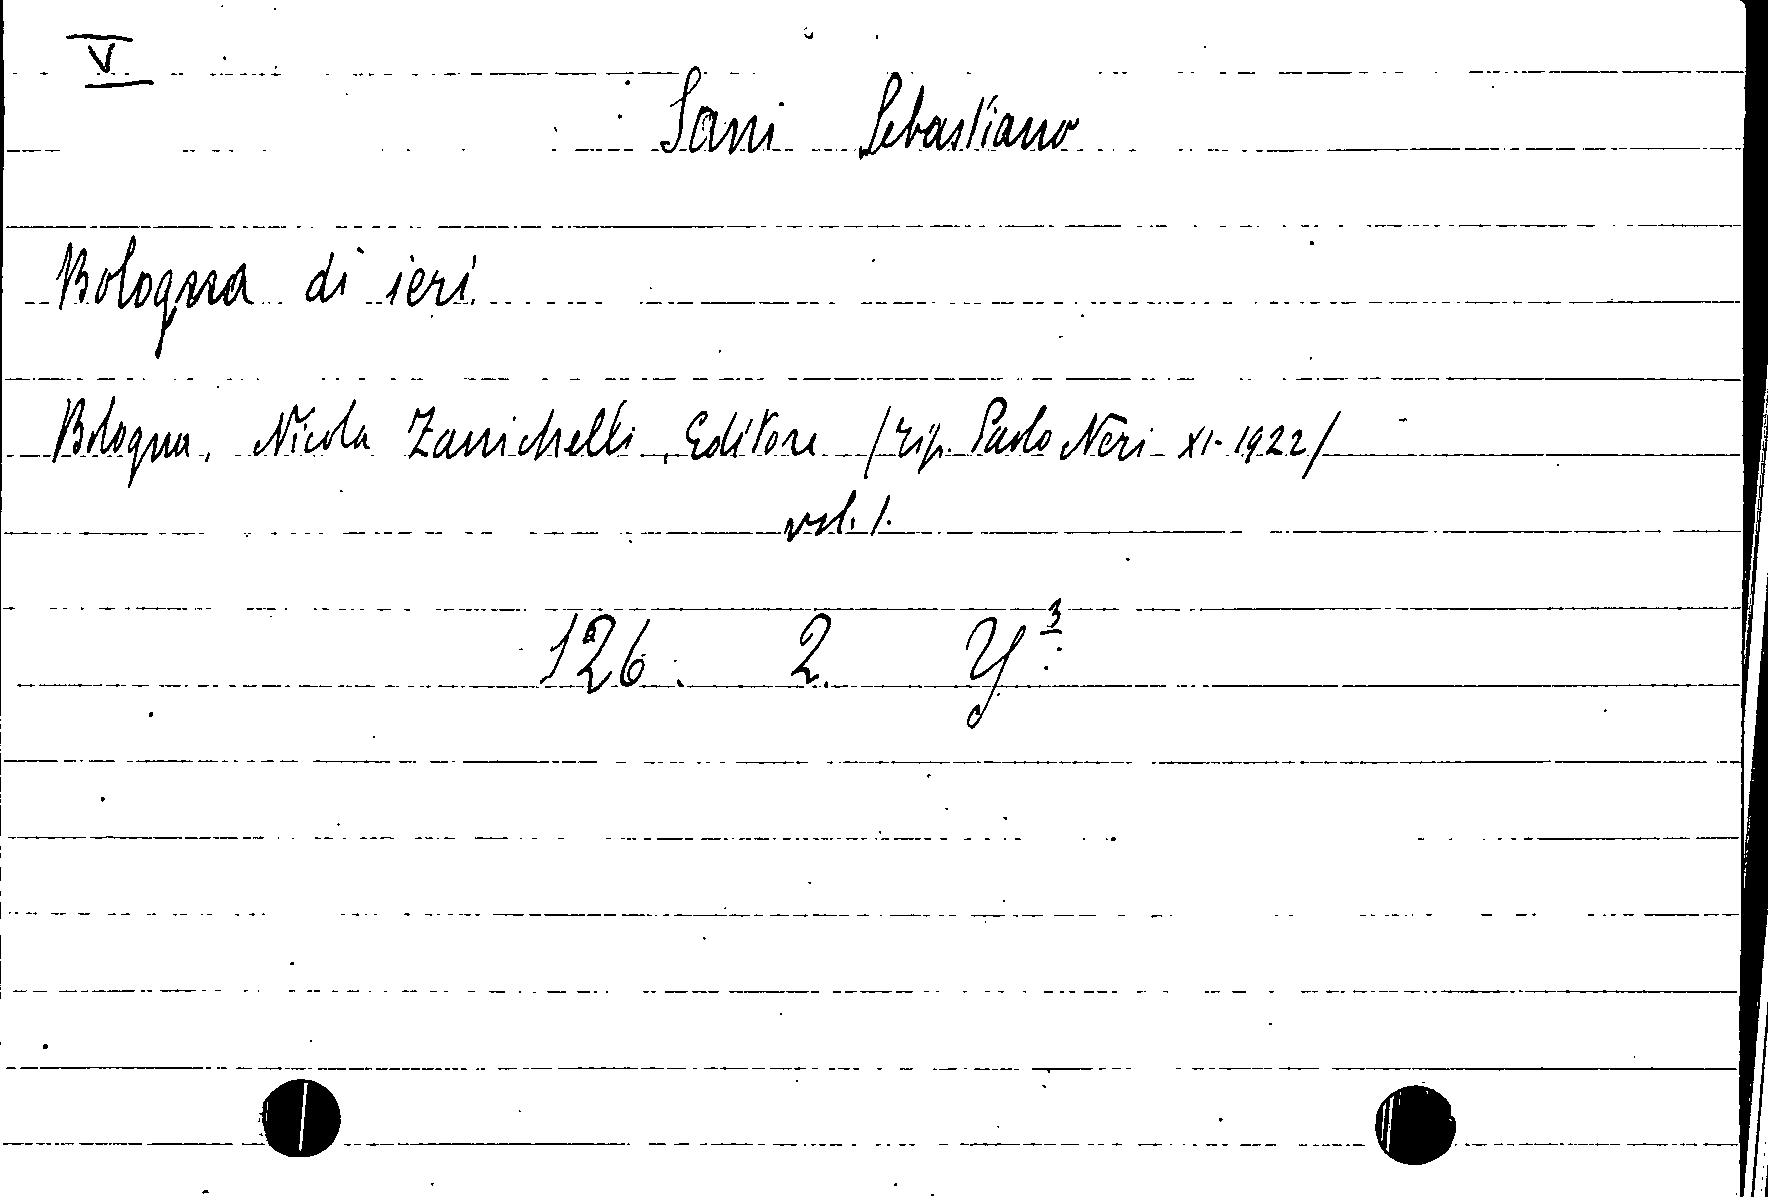 V
Sani Sebastiano
Bologna di ieri
Bologna, Nicola Zanichelli, Editore /tip. Paolo Neri XI-1922/
vol. 1.
126. 2. Y³